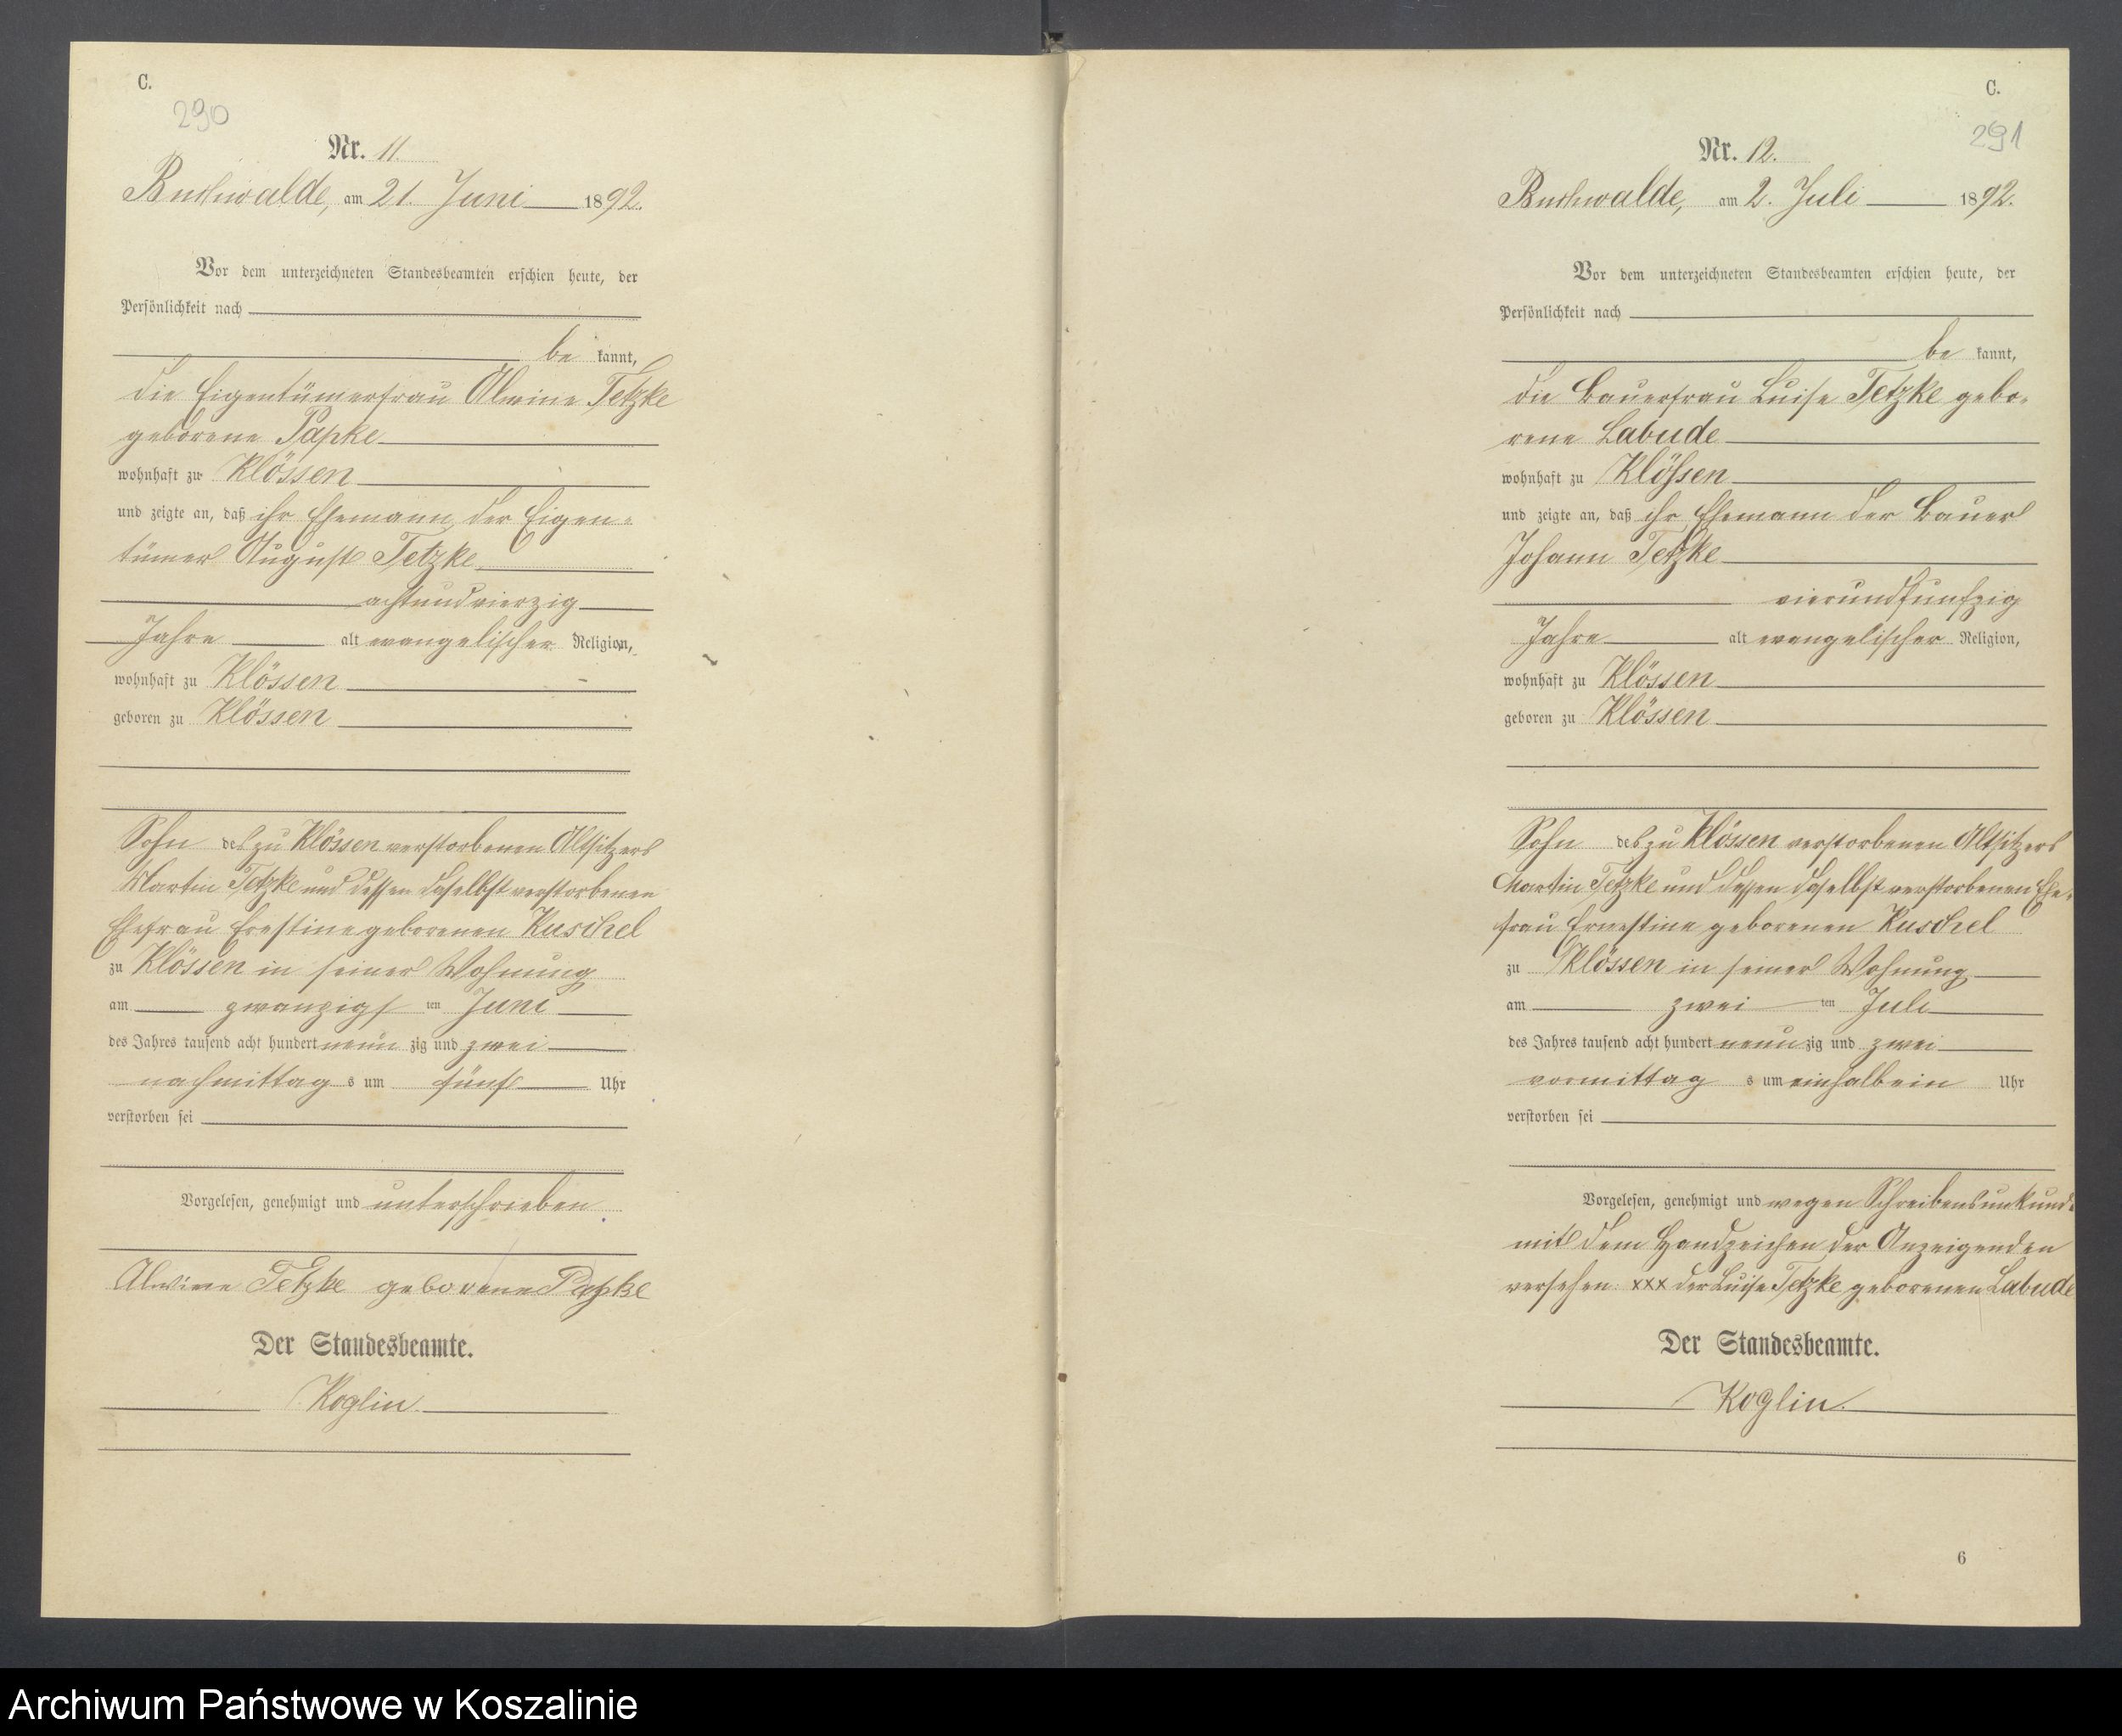 C.
290
Nr. 11.
Buchwalde, am 21. Juni 1892.
Vor dem unterzeichneten Standesbeamten erschien heute, der
Persönlichkeit nach
be kannt,
die Eigentümerfrau Alwine Tetzke
geborene Papke
wohnhaft zu Klössen
und zeigte an, daß ihr Ehemann, der Eigen-
tümer August Tetzke
achtundvierzig
Jahre alt evangelischer Religion,
wohnhaft zu Klössen
geboren zu Klössen
Sohn des zu Klössen verstorbenen Altsitzers
Martin Tetzke und dessen daselbst verstorbenen
Ehefrau Erestine geborenen Kuschel
zu Klössen in seiner Wohnung
am zwanzigs ten Juni
des Jahres tausend acht hundert neun zig und zwei
nachmittag s um fünf Uhr
verstorben sei
Vorgelesen, genehmigt und unterschrieben
Alwine Tetzke geborene Papke
Der Standesbeamte.
Koglin.
C.
291
Nr. 12.
Buchwalde, am 2. Juli 1892.
Vor dem unterzeichneten Standesbeamten erschien heute, der
Persönlichkeit nach
be kannt,
die Bauerfrau Luise Tetzke gebo-
rene Labude
wohnhaft zu Klössen
und zeigte an, daß ihr Ehemann der Bauer
Johann Tetzke
vierundfunfzig
Jahre alt evangelischer Religion,
wohnhaft zu Klössen
geboren zu Klössen
Sohn des zu Klössen verstorbenen Altsitzers
Martin Tetzke und dessen daselbst verstorbenen Ehe-
frau Ernestine geborenen Kuschel
zu Klössen in seiner Wohnung
am zwei ten Juli
des Jahres tausend acht hundert neun zig und zwei
vormittag s um einhalbein Uhr
verstorben sei
Vorgelesen, genehmigt und wegen Schreibensunkunde
mit dem Handzeichen der Anzeigenden
versehen: xxx der Luise Tetzke geborenen Labude
Der Standesbeamte.
Koglin.
6
Archiwum Państwowe w Koszalinie